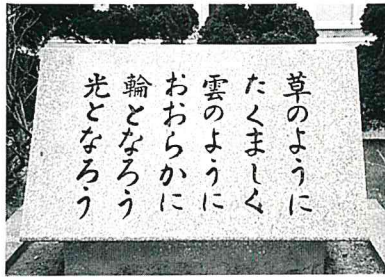 草のように
たくましく
雲のように
おおらかに
輪となろう
光となろう